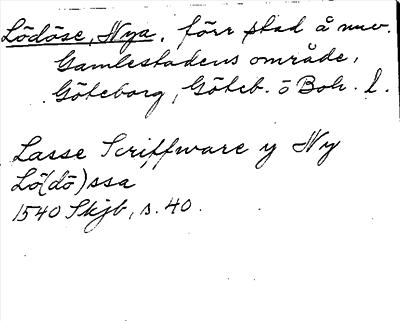 Lödöse, Nya, förr stad å nuv.
Gamlestadens område,
Göteborg, Göteb. o Boh. l.
Lasse Scriffware y Ny
Lö(dö)ssa
1540 Skjb, s. 40.